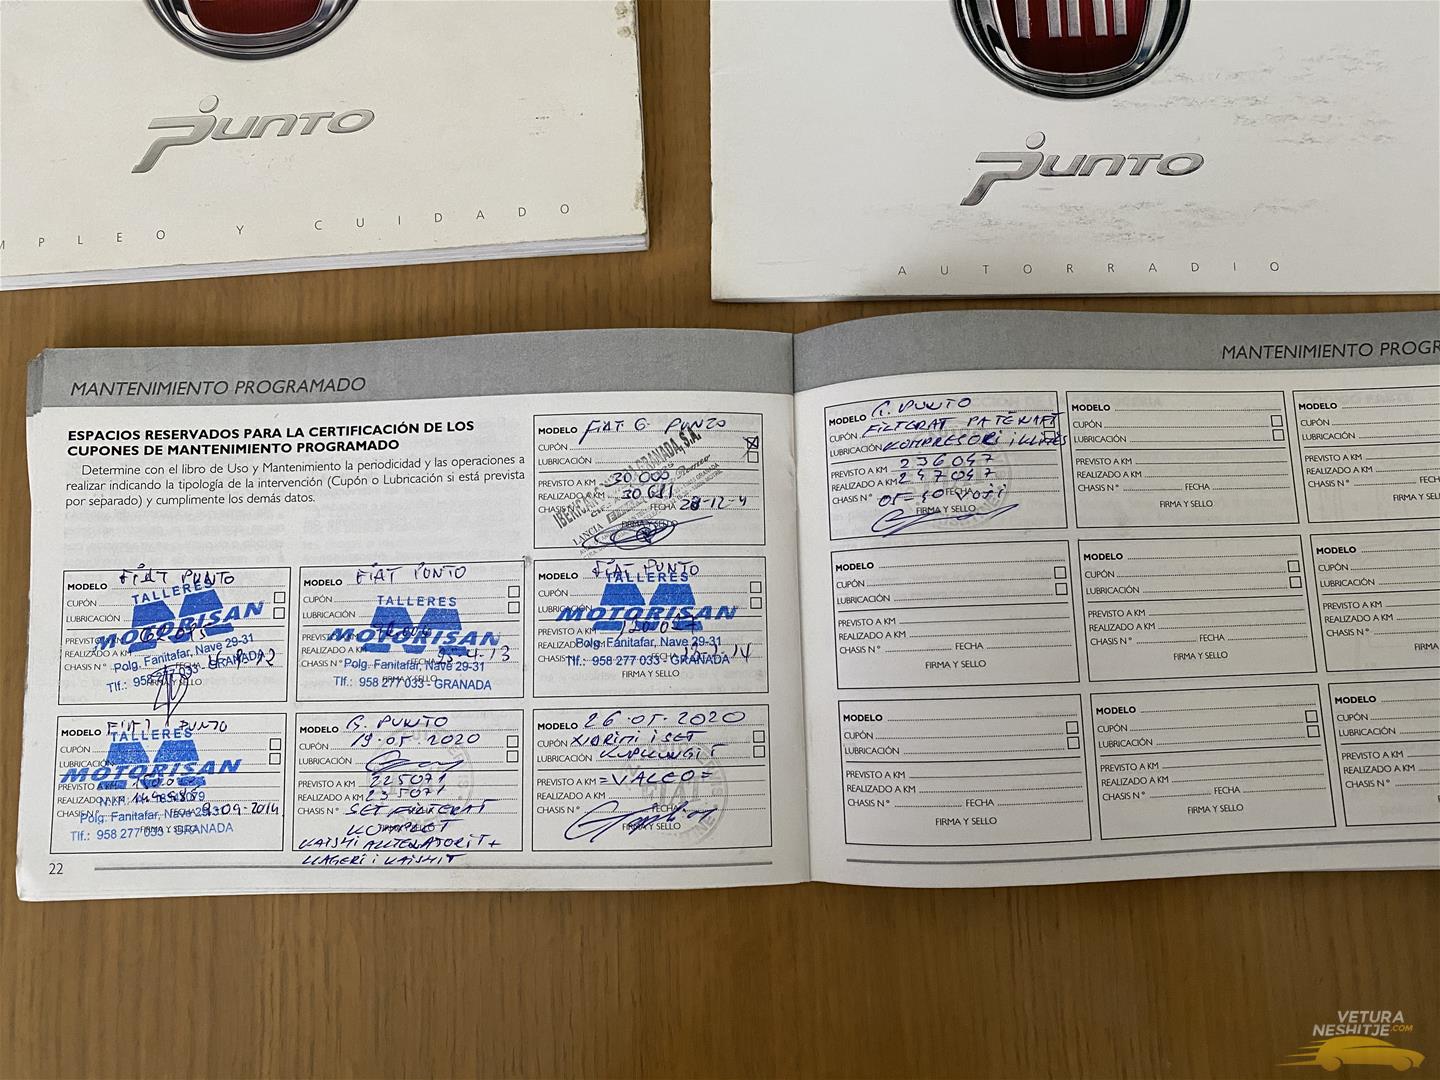 PUNTO
MPLEO Y CUIDADO
PUNTO
AUTORRADIO
MANTENIMIENTO PROGRAMADO
ESPACIOS RESERVADOS PARA LA CERTIFICACIÓN DE LOS
CUPONES DE MANTENIMIENTO PROGRAMADO
Determine con el libro de Uso y Mantenimiento la periodicidad y las operaciones a
realizar indicando la tipología de la intervención (Cupón o Lubricación si está prevista
por separado) y cumplimente los demás datos.
MODELO FIAT G. PUNTO
CUPÓN
LUBRICACIÓN
PREVISTO A KM 30 000
REALIZADO A KM 30 611
CHASIS N° FECHA
FIRMA Y SELLO
MODELO FIAT PUNTO
TALLERES
CUPÓN
LUBRICACIÓN
MOTORISAN
PREVISTO A KM
REALIZADO A KM
Polg. Fanitafar, Nave 29-31
CHASIS N°
Tlf.: 958 277 033 - GRANADA
FIRMA Y SELLO
MODELO FIAT PUNTO
TALLERES
CUPÓN
LUBRICACIÓN
MOTORISAN
PREVISTO A KM
REALIZADO A KM
Polg. Fanitafar, Nave 29-31
CHASIS N° FECHA
Tlf.: 958 277 033 - GRANADA
FIRMA Y SELLO
MODELO FIAT PUNTO
TALLERES
CUPÓN
LUBRICACIÓN
MOTORISAN
PREVISTO A KM
REALIZADO A KM
Polg. Fanitafar, Nave 29-31
CHASIS N°
Tlf.: 958 277 033 - GRANADA
FIRMA Y SELLO
MODELO FIAT PUNTO
TALLERES
CUPÓN
LUBRICACIÓN
MOTORISAN
PREVISTO A KM
REALIZADO A KM
CHASIS N° 9-09-2014
Polg. Fanitafar, Nave 29-31
Tlf.: 958 277 033 - GRANADA
FIRMA Y SELLO
MODELO G. PUNTO
CUPÓN 19.05.2020
LUBRICACIÓN
PREVISTO A KM 225071
REALIZADO A KM 235071
CHASIS N° SET FILTERAT
KOMPLET
KAISHI ALLTENATORIT +
LLAGERI I KAISHIT
MODELO 26.05.2020
CUPÓN NDRIMI I SET
LUBRICACIÓN KUPLUNGIT
PREVISTO A KM =VALEO=
REALIZADO A KM
CHASIS N° FECHA
FIRMA Y SELLO
22
MANTENIMIENTO PROGR
MODELO G. PUNTO
CUPÓN FILTERAT PATENAFT
LUBRICACIÓN KOMPRESORI I KLIMES
PREVISTO A KM 236047
REALIZADO A KM 247047
CHASIS N° FECHA
FIRMA Y SELLO
MODELO
CUPÓN
LUBRICACIÓN
PREVISTO A KM
REALIZADO A KM
CHASIS N° FECHA
FIRMA Y SELLO
MODELO
CUPÓN
LUBRICACIÓN
PREVISTO A KM
REALIZADO A KM
CHASIS N° FECH
FIRMA Y SEL
MODELO
CUPÓN
LUBRICACIÓN
PREVISTO A KM
REALIZADO A KM
CHASIS N° FECHA
FIRMA Y SELLO
MODELO
CUPÓN
LUBRICACIÓN
PREVISTO A KM
REALIZADO A KM
CHASIS N° FECHA
FIRMA Y SELLO
MODELO
CUPÓN
LUBRICACIÓN
PREVISTO A KM
REALIZADO A KM
CHASIS N° FEC
FIRMA Y S
MODELO
CUPÓN
LUBRICACIÓN
PREVISTO A KM
REALIZADO A KM
CHASIS N° FECHA
FIRMA Y SELLO
MODELO
CUPÓN
LUBRICACIÓN
PREVISTO A KM
REALIZADO A KM
CHASIS N° FECHA
FIRMA Y SELLO
MODELO
CUPÓN
LUBRICACIÓN
PREVISTO A KM
REALIZADO A KM
CHASIS N°
FIRMA Y
VETURA
NESHITJE.COM